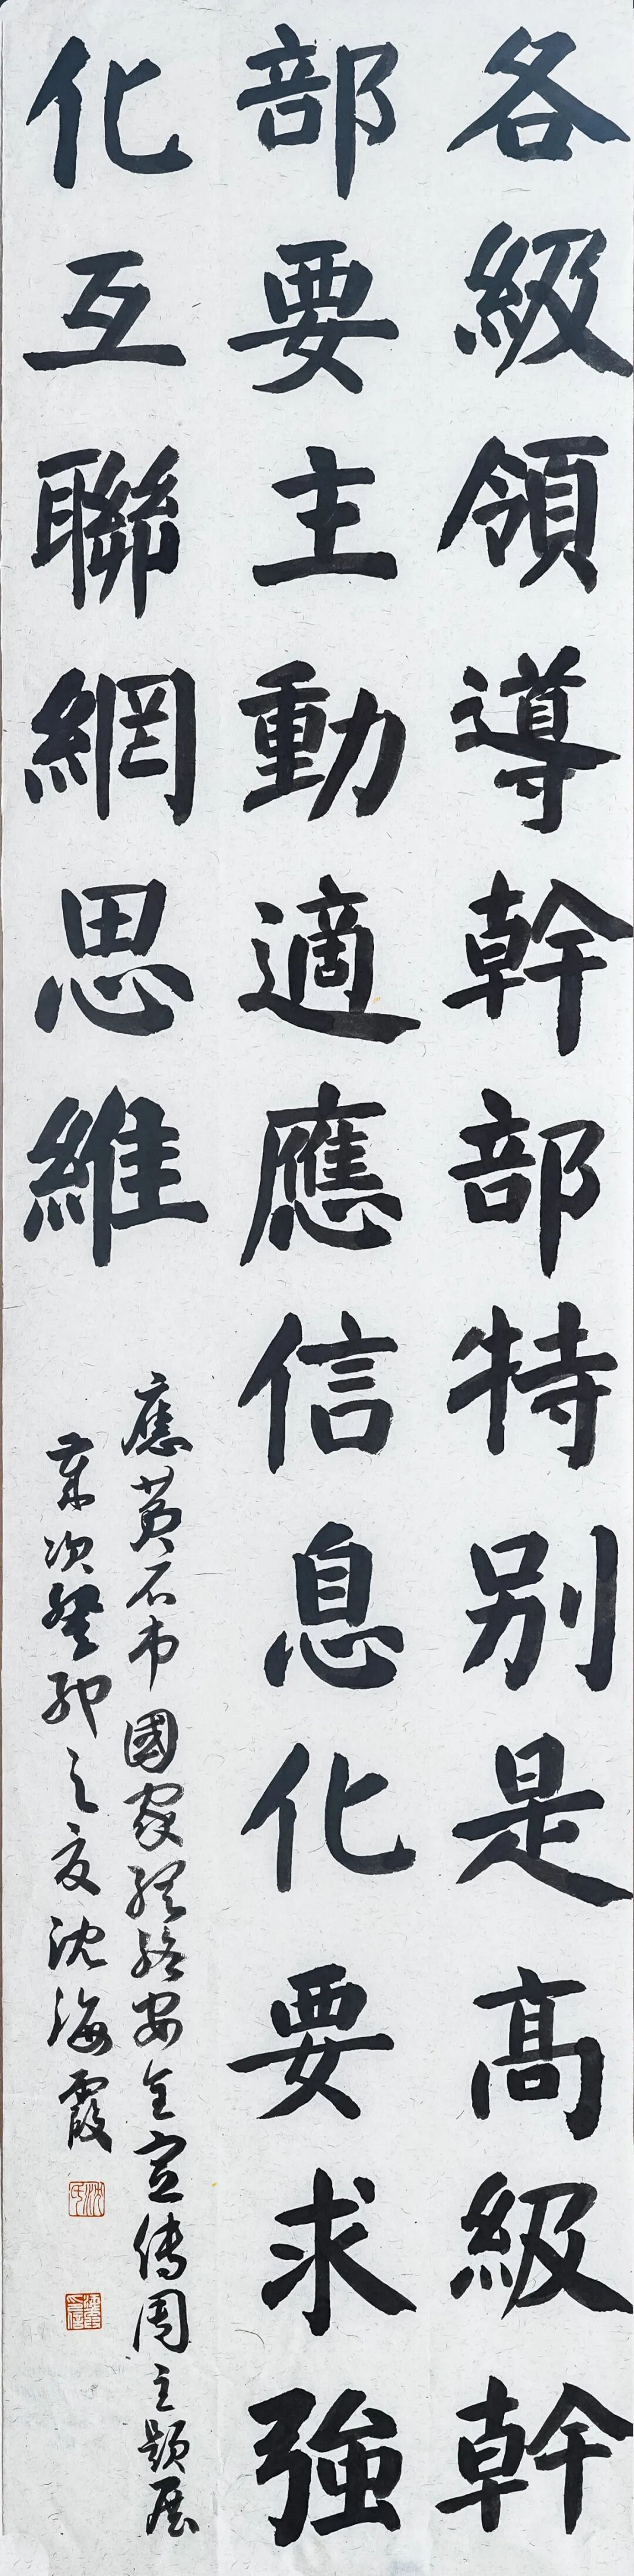 各級領導幹部特别是高級幹
部要主動適應信息化要求強
化互聯網思維
應黄石市國家網絡安全宣传周主題展
歲次癸卯之夏沈海霞
沈氏
海霞